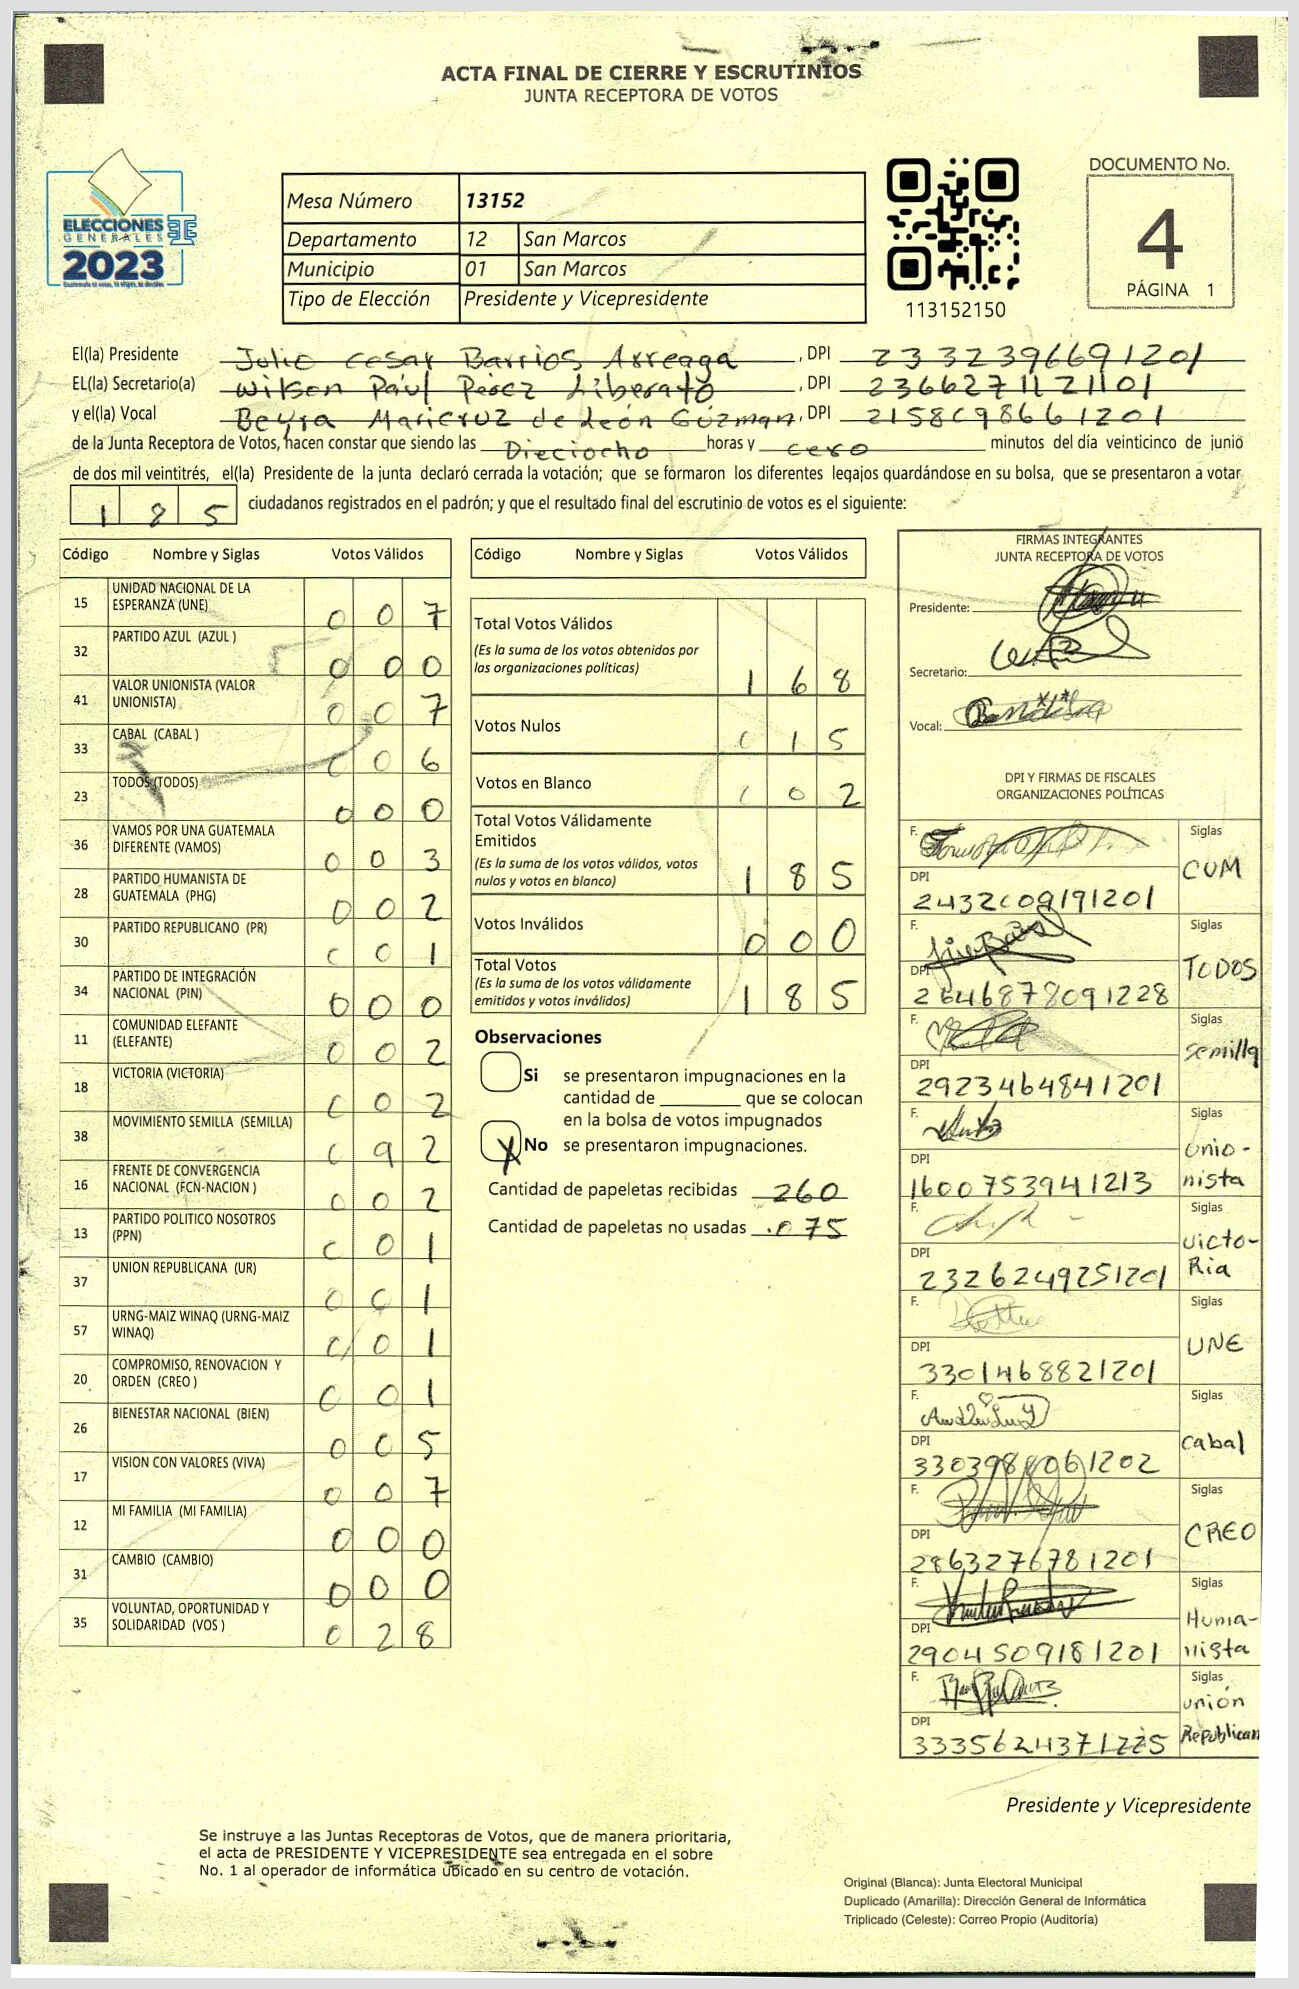 ACTA FINAL DE CIERRE Y ESCRUTINIOS
JUNTA RECEPTORA DE VOTOS
ELECCIONES
GENERALES
2023
Mesa Número 13152
Departamento 12 San Marcos
Municipio 01 San Marcos
Tipo de Elección Presidente y Vicepresidente
113152150
DOCUMENTO No.
4
PÁGINA 1
El(la) Presidente Julio Cesar Barrios Arreaga, DPI 2332396691201
EL(la) Secretario(a) Wilson Paúl Perez Liberato, DPI 2366271121101
y el(la) Vocal Beyra Maricruz de León Guzman, DPI 2158698661201
de la Junta Receptora de Votos, hacen constar que siendo las Dieciocho horas y cero minutos del día veinticinco de junio
de dos mil veintitrés, el(la) Presidente de la junta declaró cerrada la votación; que se formaron los diferentes legajos guardándose en su bolsa, que se presentaron a votar
185 ciudadanos registrados en el padrón; y que el resultado final del escrutinio de votos es el siguiente:
Código Nombre y Siglas Votos Válidos
15 UNIDAD NACIONAL DE LA ESPERANZA (UNE) 007
32 PARTIDO AZUL (AZUL ) 000
41 VALOR UNIONISTA (VALOR UNIONISTA) 007
33 CABAL (CABAL ) 006
23 TODOS (TODOS) 000
36 VAMOS POR UNA GUATEMALA DIFERENTE (VAMOS) 003
28 PARTIDO HUMANISTA DE GUATEMALA (PHG) 002
30 PARTIDO REPUBLICANO (PR) 001
34 PARTIDO DE INTEGRACIÓN NACIONAL (PIN) 000
11 COMUNIDAD ELEFANTE (ELEFANTE) 002
18 VICTORIA (VICTORIA) 002
38 MOVIMIENTO SEMILLA (SEMILLA) 092
16 FRENTE DE CONVERGENCIA NACIONAL (FCN-NACION ) 002
13 PARTIDO POLITICO NOSOTROS (PPN) 001
37 UNION REPUBLICANA (UR) 001
57 URNG-MAIZ WINAQ (URNG-MAIZ WINAQ) 001
20 COMPROMISO, RENOVACION Y ORDEN (CREO ) 001
26 BIENESTAR NACIONAL (BIEN) 005
17 VISION CON VALORES (VIVA) 007
12 MI FAMILIA (MI FAMILIA) 000
31 CAMBIO (CAMBIO) 000
35 VOLUNTAD, OPORTUNIDAD Y SOLIDARIDAD (VOS ) 028
Código Nombre y Siglas Votos Válidos
Total Votos Válidos 168
(Es la suma de los votos obtenidos por
las organizaciones políticas)
Votos Nulos 015
Votos en Blanco 002
Total Votos Válidamente
Emitidos 185
(Es la suma de los votos válidos, votos
nulos y votos en blanco)
Votos Inválidos 000
Total Votos 185
(Es la suma de los votos válidamente
emitidos y votos inválidos)
Observaciones
Si se presentaron impugnaciones en la
cantidad de ________ que se colocan
en la bolsa de votos impugnados
X No se presentaron impugnaciones.
Cantidad de papeletas recibidas 260
Cantidad de papeletas no usadas 075
FIRMAS INTEGRANTES
JUNTA RECEPTORA DE VOTOS
Presidente:
Secretario:
Vocal:
DPI Y FIRMAS DE FISCALES
ORGANIZACIONES POLÍTICAS
F. Siglas CUM
DPI 2432609191201
F. Siglas TODOS
DPI 2646878091228
F. Siglas Semilla
DPI 2923464841201
F. Siglas Unio-
nista
DPI 1600753941213
F. Siglas Victo-
Ria
DPI 2326249251201
F. Siglas UNE
DPI 3301468821201
F. Siglas Cabal
DPI 3303988061202
F. Siglas CREO
DPI 2863276781201
F. Siglas Huma-
nista
DPI 2904509181201
F. Siglas unión
Republican
DPI 3335624371225
Presidente y Vicepresidente
Se instruye a las Juntas Receptoras de Votos, que de manera prioritaria,
el acta de PRESIDENTE Y VICEPRESIDENTE sea entregada en el sobre
No. 1 al operador de informática ubicado en su centro de votación.
Original (Blanca): Junta Electoral Municipal
Duplicado (Amarilla): Dirección General de Informática
Triplicado (Celeste): Correo Propio (Auditoría)